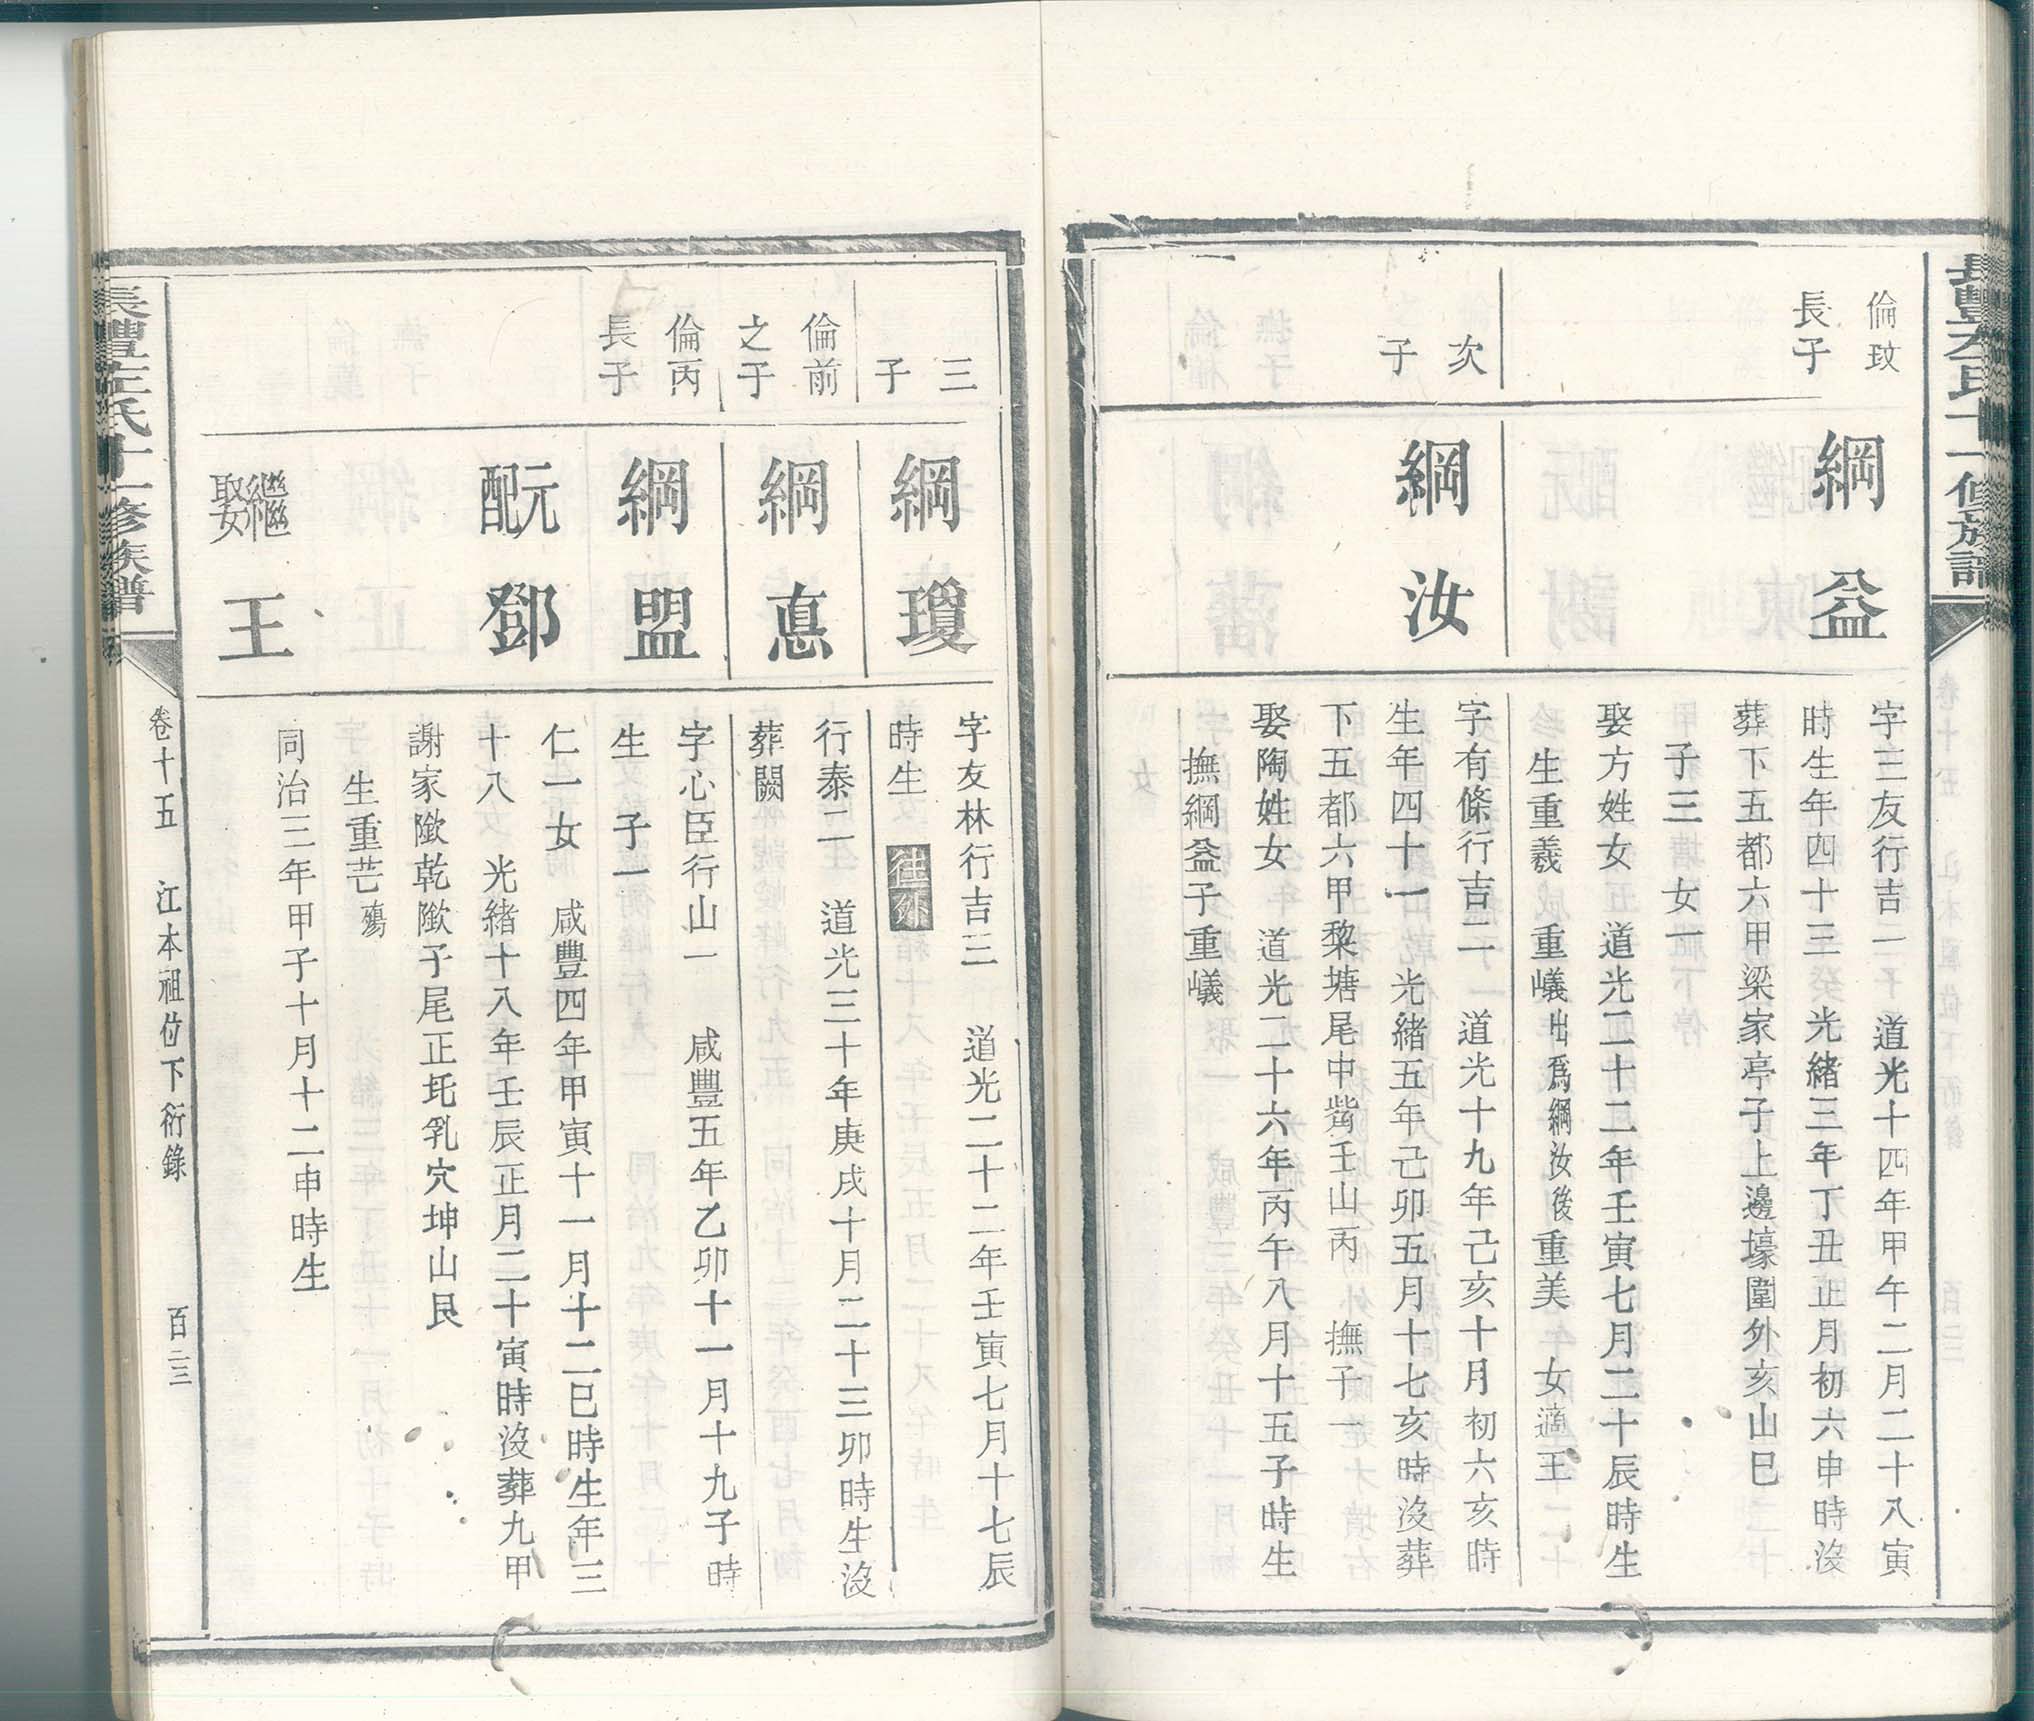 倫玟
長子
綱益
字三友行吉一　道光十四年甲午二月二十八寅
時生年四十三　光緒三年丁丑正月初六申時沒
葬下五都六甲梁家亭子上邊壕圍外亥山巳
子三　女一
娶方姓女　道光二十二年壬寅七月二十辰時生
生重羲　重嶬出爲綱汝後重美　女適王
次
子
綱汝
字有條行吉二　道光十九年己亥十月初六亥時
生年四十一　光緒五年己卯五月十七亥時沒葬
下五都六甲黎塘尾中嘴壬山丙　撫子一
娶陶姓女　道光二十六年丙午八月十五子時生
撫綱益子重嶬
三
子
綱瓊
字友林行吉三　道光二十二年壬寅七月十七辰
時生　往外
倫前
之子
綱惪
行泰二　道光三十年庚戌十月二十三卯時生沒
葬闕
倫丙
長子
綱盟
字心臣行山一　咸豐五年乙卯十一月十九子時
生　子一
元配鄧
仁一女　咸豐四年甲寅十一月十二巳時生年三
十八　光緒十八年壬辰正月二十寅時沒葬九甲
謝家隞乾隞子尾正乳穴坤山艮
生重芒殤
繼娶王
同治三年甲子十月十二申時生
長豐左氏十一修族譜
卷十五　江本祖位下衍錄　百二三